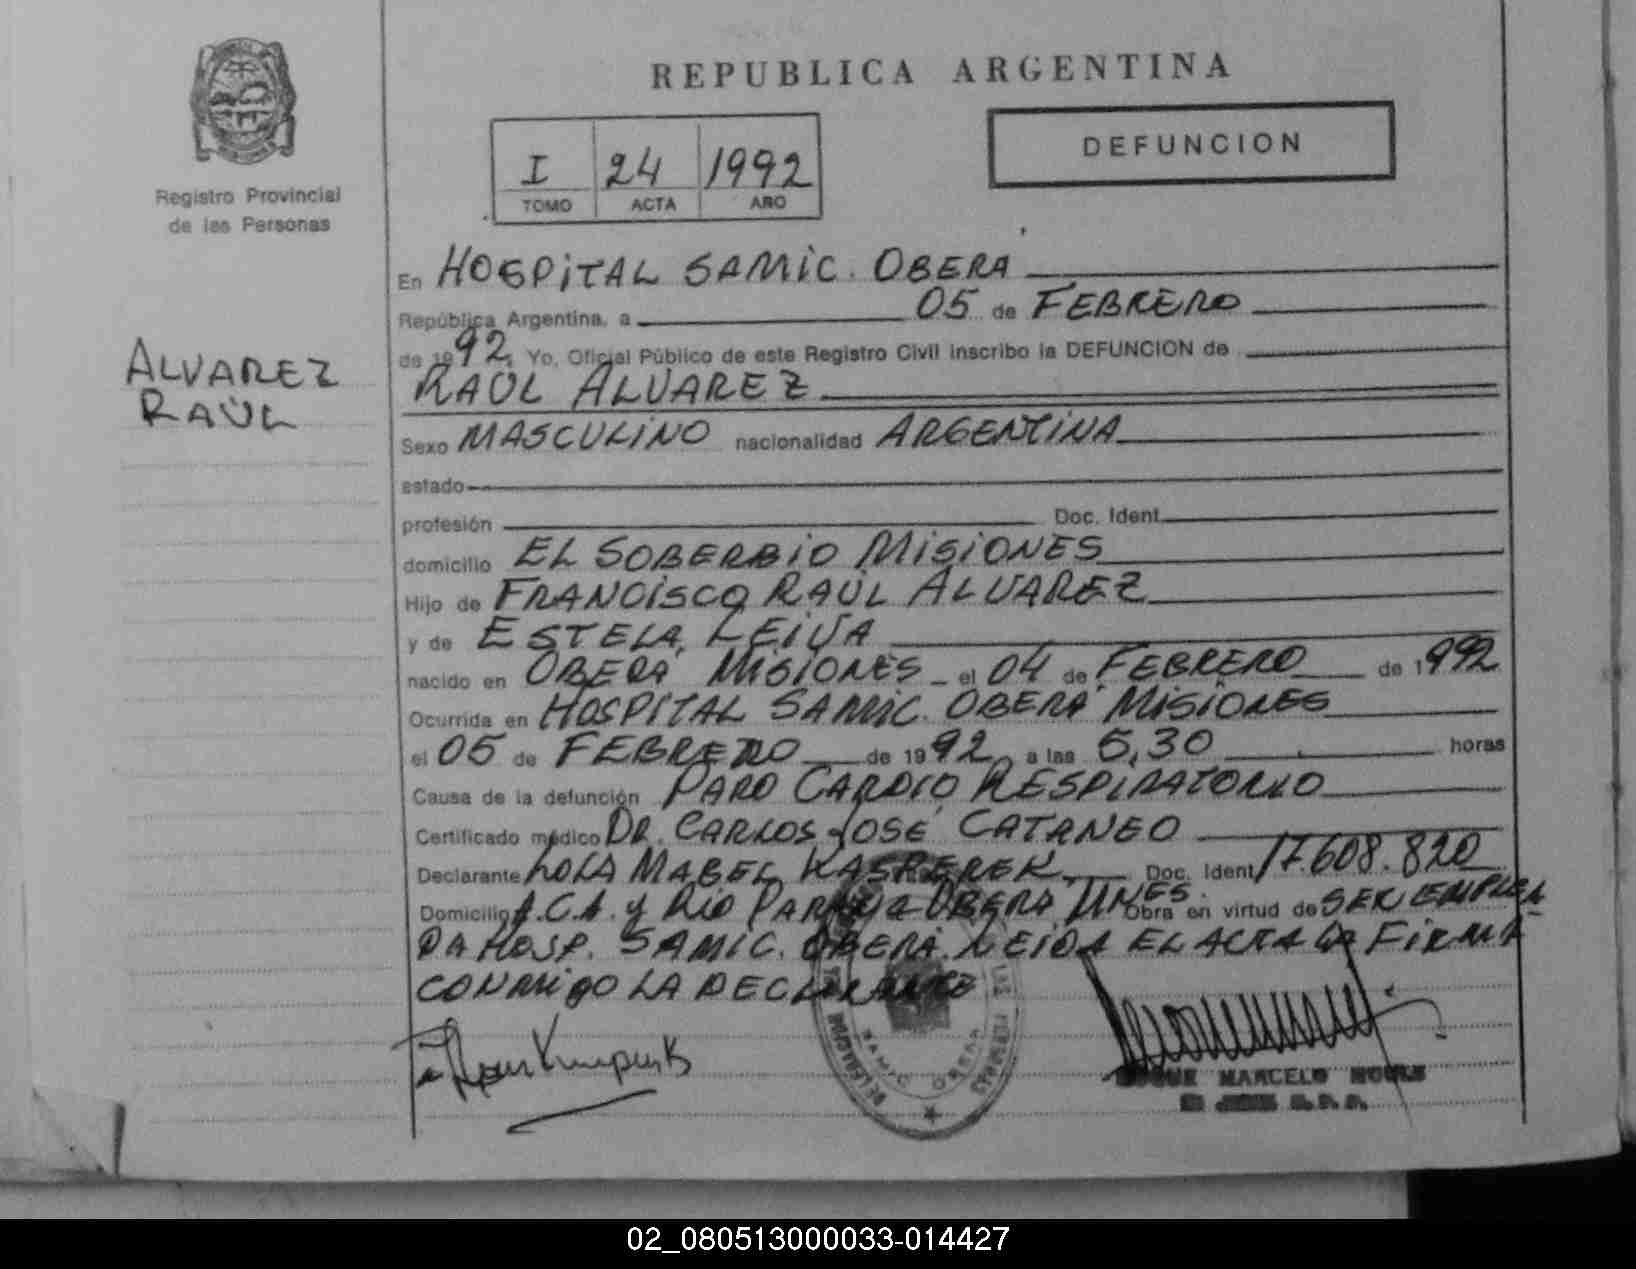 REPUBLICA ARGENTINA
DEFUNCION
I 24 1992
TOMO ACTA AÑO
Registro Provincial
de las Personas
ALVAREZ
RAÚL
En HOSPITAL SAMIC. OBERÁ
República Argentina, a 05 de FEBRERO
de 1992, Yo, Oficial Público de este Registro Civil inscribo la DEFUNCION de
RAÚL ALVAREZ
Sexo MASCULINO nacionalidad ARGENTINA
estado
profesión Doc. Ident.
domicilio EL SOBERBIO MISIONES
Hijo de FRANCISCO RAÚL ALVAREZ
y de ESTELA LEIVA
nacido en OBERÁ MISIONES el 04 de FEBRERO de 1992
Ocurrida en HOSPITAL SAMIC. OBERÁ MISIONES
el 05 de FEBRERO de 1992 a las 5,30 horas
Causa de la defunción PARO CARDIO RESPIRATORIO
Certificado médico DR. CARLOS JOSÉ CATANEO
Declarante MABEL Doc. Ident 17.608.820
Domicilio A.C.A. y Río PARANÁ OBERÁ MNES. Obra en virtud de SER EMPLEA
DA HOSP. SAMIC. OBERÁ. LEIDA EL ACTA LA FIRMA
CONMIGO LA DECLARANTE
DELEGACION
SAMIC OBERA
LAS PERSONAS
MARCELO
02_080513000033-014427